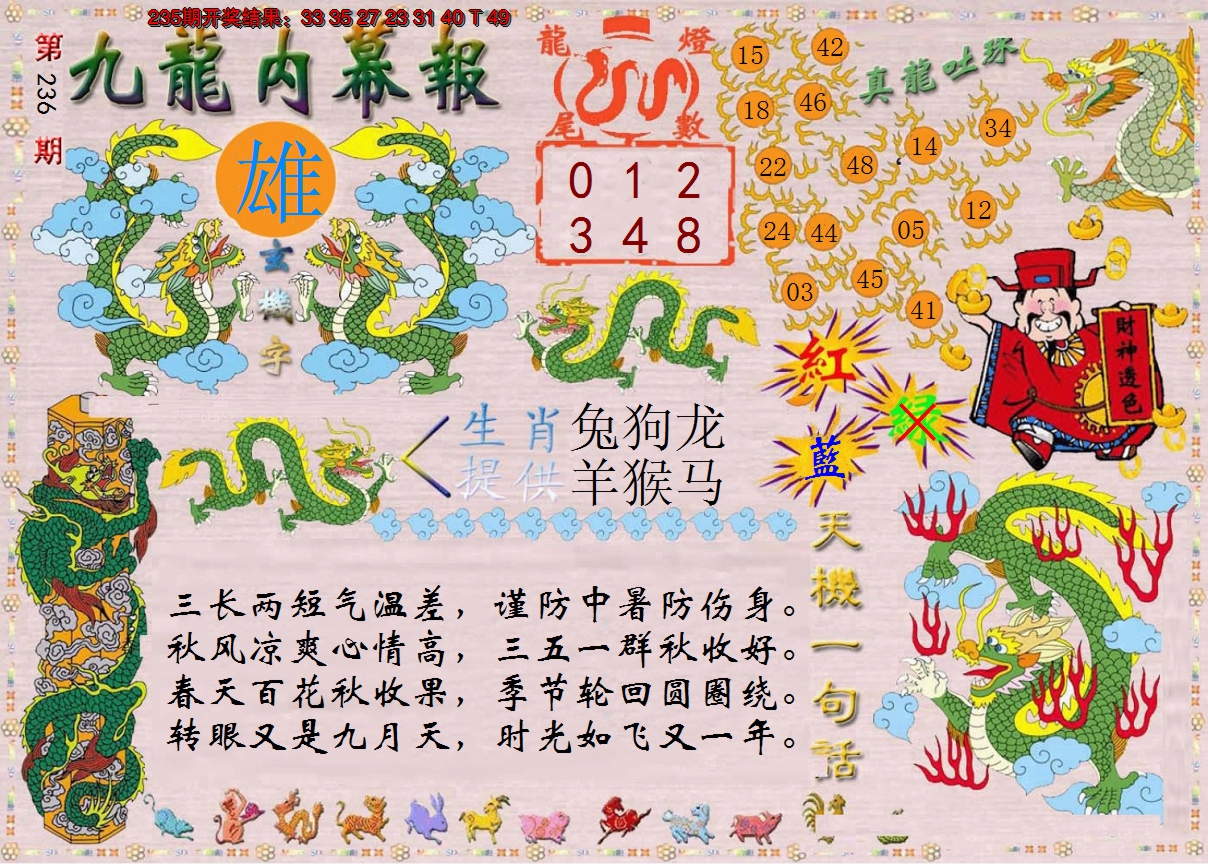 235期开奖结果：33 35 27 23 31 40 T 49
第
236
期
九龍内幕報
雄
玄
機
字
龍
燈
尾
數
0 1 2
3 4 8
真龍吐珠
15
42
18
46
22
48
14
34
24
44
05
12
03
45
41
紅
绿
藍
財
神
透
色
生肖
提供
兔狗龙
羊猴马
天
機
一
句
話
三长两短气温差，谨防中暑防伤身。
秋风凉爽心情高，三五一群秋收好。
春天百花秋收果，季节轮回圆圈绕。
转眼又是九月天，时光如飞又一年。